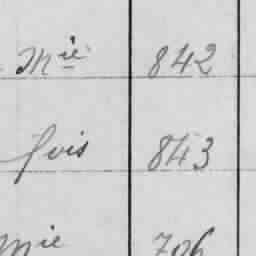 Mie 842
fois 843
mie 706